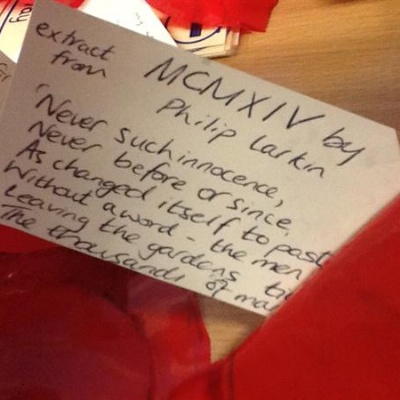 extract
from
MCMXIV by
Philip Larkin
'Never such innocence,
Never before or since,
As changed itself to past
Without a word - the men
Leaving the gardens
The thousands of